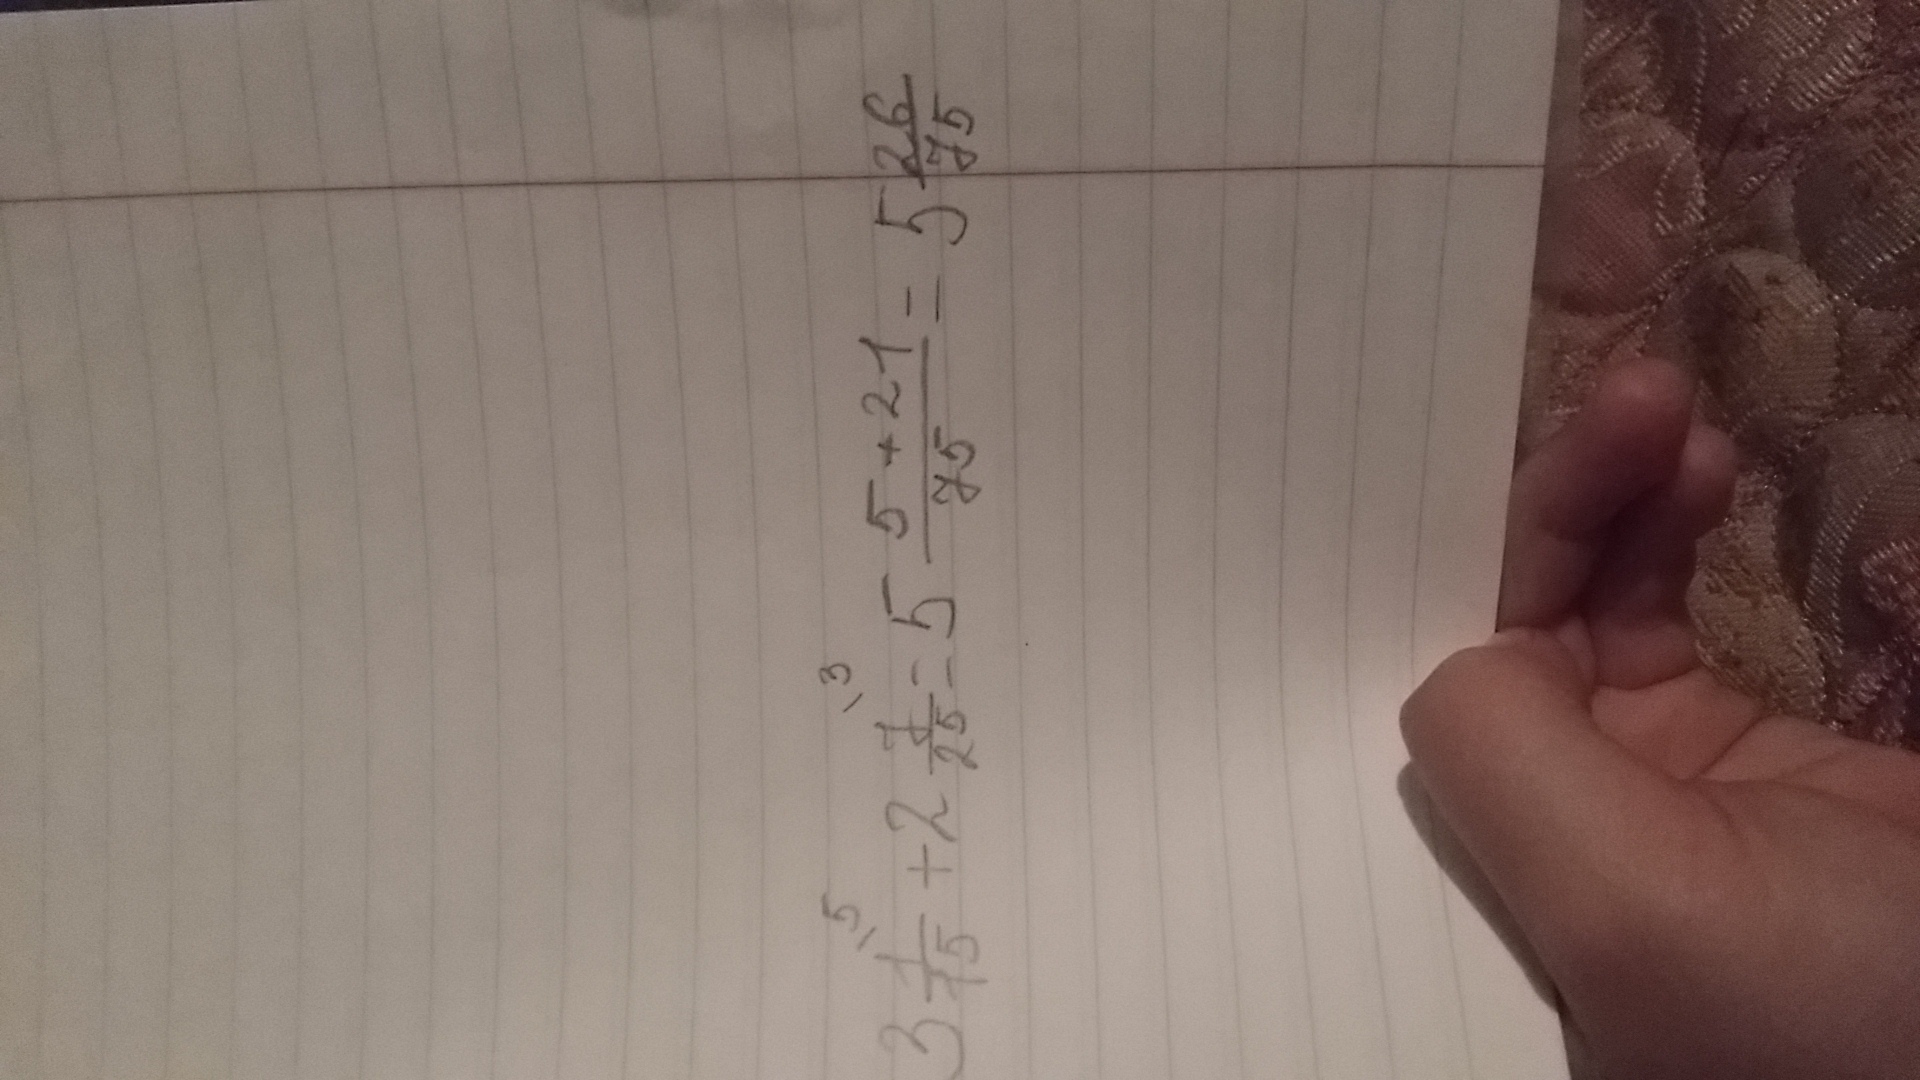 3 1/15 \5 + 2 7/25 \3 = 5 5+21/75 = 5 26/75